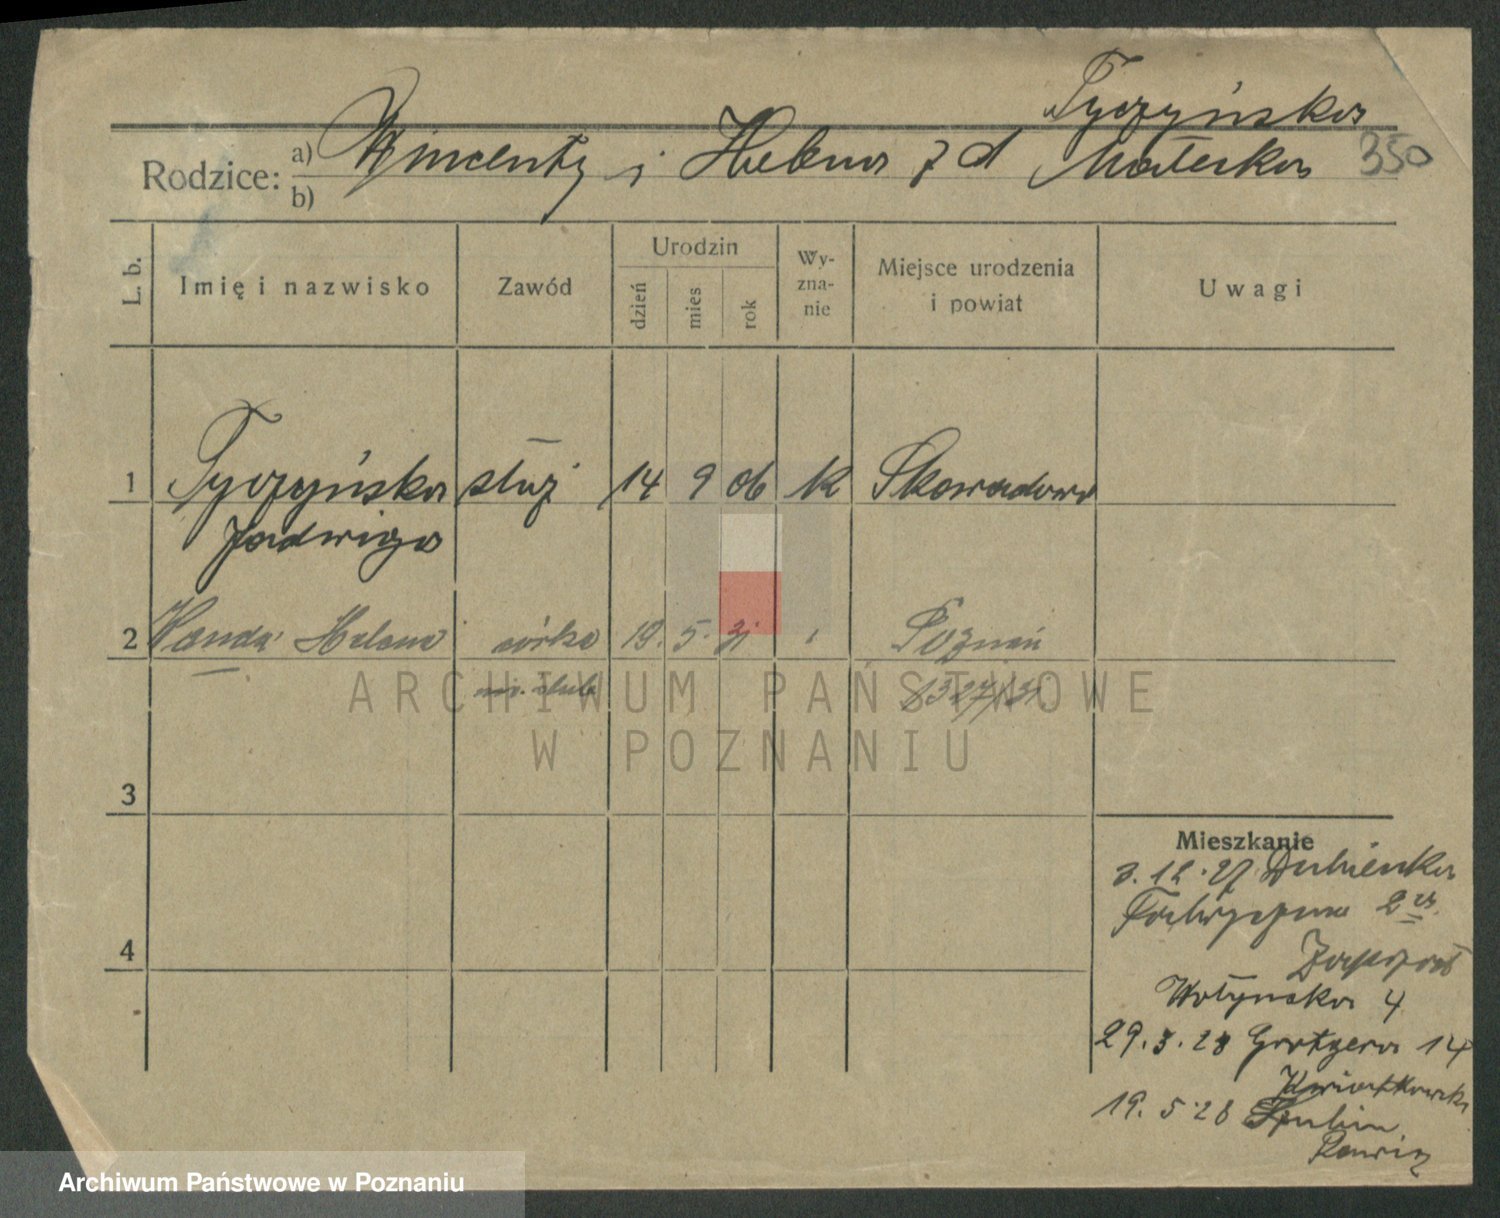 Tyczyńska
Rodzice: a) Wincenty i Helena z d Małecka 350
b)
L. b. Imię i nazwisko Zawód Urodzin dzień mies rok Wy-zna-nie Miejsce urodzenia i powiat Uwagi
1 Tyczyńska służ 14 9 06 k
Jadwiga
2 Wanda Helena córka 19. 5. 31 Poznań
1327/31
ARCHIWUM PAŃSTWOWE
W POZNANIU
3
Mieszkanie
3. 12. 27
2
4
Wołyńska 4
29. 3. 28 Grotgera 14
Kwiatkowski
19. 5 28
Rawicz
Archiwum Państwowe w Poznaniu